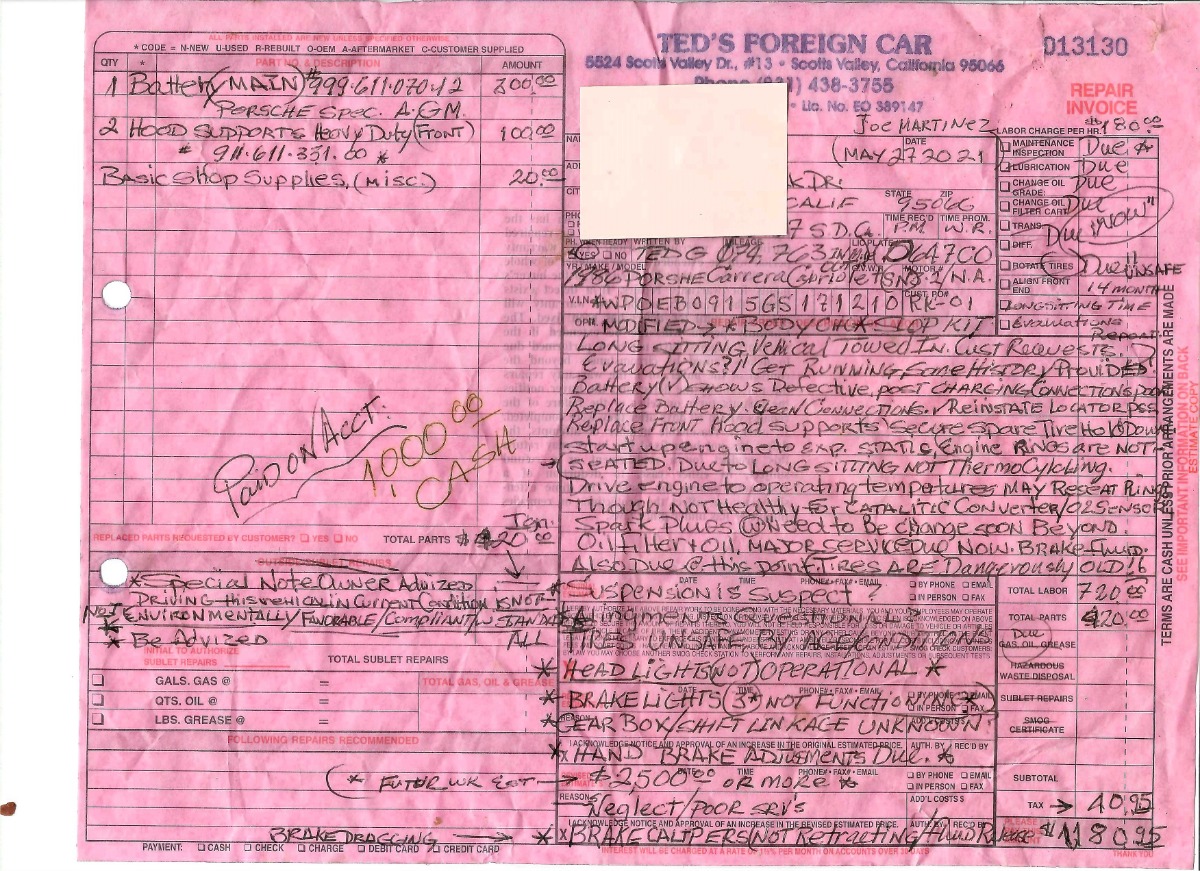 ALL PARTS INSTALLED ARE NEW UNLESS SPECIFIED OTHERWISE
* CODE = N-NEW U-USED R-REBUILT O-OEM A-AFTERMARKET C-CUSTOMER SUPPLIED
QTY * PART NO. & DESCRIPTION AMOUNT
1 Battery (MAIN) # 999.611.070.12 300.00
PORSCHE SPEC. A.G.M.
2 HOOD SUPPORTS Heavy Duty (Front) 100.00
# 911.611.331.00 *
Basic Shop Supplies, (misc.) 20.00
Paid ON ACCT.
1,000.00
CASH
REPLACED PARTS REQUESTED BY CUSTOMER? YES NO TOTAL PARTS $ 420.00
* Special Note Owner Advized
DRIVING this vehical in Current Condition IS NOT
ENVIRONMENTALLY FAVORABLE/Compliant
* Be Advized ALL
INITIAL TO AUTHORIZE SUBLET REPAIRS
TOTAL SUBLET REPAIRS
GALS. GAS @ = TOTAL GAS, OIL & GREASE
QTS. OIL @ =
LBS. GREASE @ =
FOLLOWING REPAIRS RECOMMENDED
(* FUTUR WK EST
BRAKE DRAGGING
PAYMENT: CASH CHECK CHARGE DEBIT CARD CREDIT CARD
TED'S FOREIGN CAR
5524 Scotts Valley Dr., #13 • Scotts Valley, California 95066
438-3755
• Lic. No. EO 389147
013130
REPAIR INVOICE
Joe MARTINEZ
LABOR CHARGE PER HR. $180.00
DATE
(MAY 27 2021)
STATE ZIP
CALIF 95066
TIME REC'D TIME PROM.
P.M. W.R.
PH. WHEN READY WRITTEN BY MILEAGE LIC PLATE
YES NO TED G
YR./MAKE/MODEL MOTOR#
1986 PORSHE Carrera Cabriolet N.A.
V.I.N. #WPOEB0915GS171210 RR-01
MAINTENANCE INSPECTION Due
LUBRICATION Due
CHANGE OIL GRADE: Due
CHANGE OIL FILTER CART Due
TRANS. Due "NOW"
DIFF.
ROTATE TIRES Due UNSAFE
ALIGN FRONT END 14 MONTH
LONG SITTING TIME
EVAUATIONS Report
OPR. MODIFIED → * BODY KIT
LONG SITTING Vehical TOWED IN. Cust Requests.
EVAUATIONS?/ GET RUNNING, Some History/PROVIDED
Battery (V) SHOWS Defective, POST CHARGING CONNECTIONS POOR
Replace Battery. Clean Connections. REINSTATE LOCATOR PSS
Replace FRONT Hood supports Secure Spare Tire Hold Down
start up engine to exp. STATIS, Engine RINGS are NOT
SEATED. Due to LONG SITTING NOT ThermoCycloing.
Drive engine to operating tempertures MAY Reseat Rings
Though NOT Healthy For CATALITIC Converter/O2 SENSORS
Spark Plugs Need to Be change soon Beyond
Oil filter + Oil, MAJOR SERVICE DUE NOW. BRAKE Fluid.
Also Due @ this point. TIRES ARE Dangerously OLD!
SUSPENSION IS SUSPECT?
TIRES UNSAFE BY AGE CONDITIONS
* HEAD LIGHTS (NOT) OPERATIONAL *
* BRAKE LIGHTS (3*) NOT FUNCTIONING *
* GEAR BOX/SHIFT LINKAGE UNKNOWN
I ACKNOWLEDGE NOTICE AND APPROVAL OF AN INCREASE IN THE ORIGINAL ESTIMATED PRICE. AUTH. BY REC'D BY
* HAND BRAKE ADJUSMENTS DUE. *
$2,500.00 OR MORE *
BY PHONE EMAIL
IN PERSON FAX
REASON ADD'L COSTS $
Neglect/POOR SRV'S
I ACKNOWLEDGE NOTICE AND APPROVAL OF AN INCREASE IN THE REVISED ESTIMATED PRICE. AUTH. BY REC'D BY
* BRAKE CALIPERS (NOT Retracting fluid Release
TOTAL LABOR 720.00
TOTAL PARTS 420.00
Due
GAS, OIL, GREASE
HAZARDOUS WASTE DISPOSAL
SUBLET REPAIRS
SMOG CERTIFICATE
SUBTOTAL
TAX → 40.95
$1,180.95
THANK YOU
INTEREST WILL BE CHARGED AT A RATE OF 1½% PER MONTH ON ACCOUNTS OVER 30 DAYS
TERMS ARE CASH UNLESS PRIOR ARRANGEMENTS ARE MADE
SEE IMPORTANT INFORMATION ON BACK